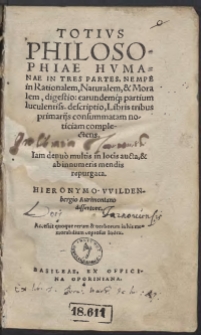 TOTIVS
PHILOSO-
PHIAE HVMA-
NAE IN TRES PARTES, NEMPE
in Rationalem, Naturalem, & Mora
lem, digestio: earundemq́; partium
luculentiss. descriptio, Libris tribus
primarijs consummatam no-
ticiam comple-
ctens.
Iam denuò multis in locis aucta, &
ab innumeris mendis
repurgata.
HIERONYMO VVILDEN-
bergio Aurimontano
autore.
Accessit quoque rerum & uerborum in his me-
morabilium copiosus Index.
BASILEAE, EX OFFICI-
NA OPORINIANA.
18.611